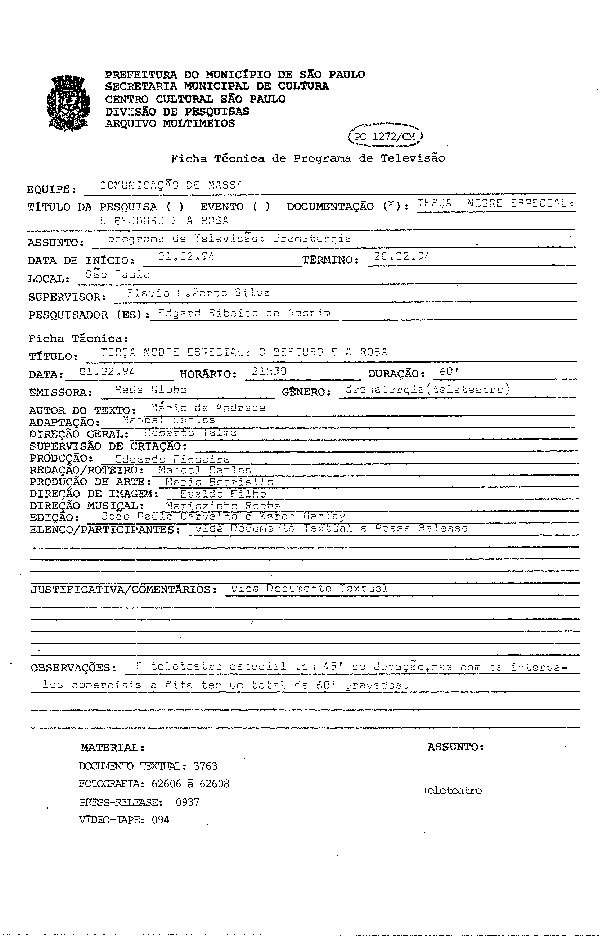 PREFEITURA DO MUNICÍPIO DE SÃO PAULO
SECRETARIA MUNICIPAL DE CULTURA
CENTRO CULTURAL SÃO PAULO
DIVISÃO DE PESQUISAS
ARQUIVO MULTIMEIOS
PC 1272/CM
Ficha Técnica de Programa de Televisão
EQUIPE: COMUNICAÇÃO DE MASSA
TÍTULO DA PESQUISA ( ) EVENTO ( ) DOCUMENTAÇÃO (X): TERÇA NOBRE ESPECIAL:
A ROSA
ASSUNTO: programa de Televisão: Dramaturgia
DATA DE INÍCIO: 01.02.94 TÉRMINO:
LOCAL: São Paulo
SUPERVISOR: Flavio Porto Silva
PESQUISADOR (ES): Edgard Ribeiro de Amorim
Ficha Técnica:
TÍTULO: TERÇA NOBRE ESPECIAL: O BESOURO E A ROSA
DATA: 01.02.94 HORÁRIO: 21h30 DURAÇÃO: 60'
EMISSORA: Rede Globo GÊNERO: dramaturgia(teleteatro)
AUTOR DO TEXTO: Mário de Andrade
ADAPTAÇÃO: Marcel Carlos
DIREÇÃO GERAL: Roberto Talma
SUPERVISÃO DE CRIAÇÃO:
PRODUÇÃO: Eduardo Figueira
REDAÇÃO/ROTEIRO: Marcel Carlos
PRODUÇÃO DE ARTE: Mario
DIREÇÃO DE IMAGEM: Evaldo Filho
DIREÇÃO MUSICAL: Mariozinho Rocha
EDIÇÃO: João Paulo Carvalho e
ELENCO/PARTICIPANTES: vide Documento Textual e Press Release
JUSTIFICATIVA/COMENTÁRIOS: vide Documento Textual
OBSERVAÇÕES: O teleteatro especial tem 45' de duração, mas com os interva-
los comerciais a fita tem um total de 60' gravados.
MATERIAL: ASSUNTO:
DOCUMENTO TEXTUAL: 3763
FOTOGRAFIA: 62606 à 62608 teleteatro
PRESS-RELEASE: 0937
VÍDEO-TAPE: 094